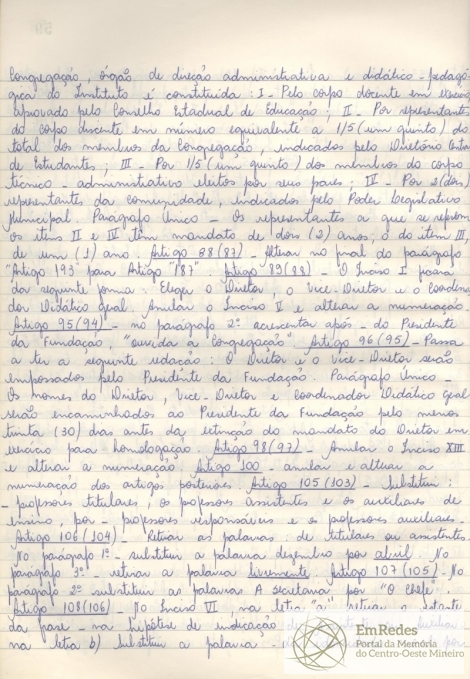 Congregação, órgão de direção administrativa e didático-pedagó-
gica do Instituto é constituída: I - Pelo corpo docente em exercício
aprovado pelo Conselho Estadual de Educação; II - Por representantes
do corpo discente em número equivalente a 1/5 (um quinto) do
total dos membros da Congregação, indicados pelo Diretório Central
de Estudantes; III - Por 1/5 (um quinto) dos membros do corpo
técnico-administrativo eleitos por seus pares; IV - Por 2 (dois)
representantes da comunidade, indicados pelo Poder Legislativo
Municipal. Parágrafo Único - Os representantes a que se referem
os itens II e IV têm mandato de dois (2) anos, o do item III,
de um (1) ano. Artigo 88 (87) - Alterar no final do parágrafo
"Artigo 193" para Artigo "187". Artigo 89 (88) - O Inciso I ficará
da seguinte forma: Eleger o Diretor, o Vice-Diretor e o Coordena-
dor Didático Geral. Anular o Inciso V e alterar a numeração.
Artigo 95 (94) - no parágrafo 2º acrescentar após - do Presidente
da Fundação, "ouvida a Congregação". Artigo 96 (95) - Passa
a ter a seguinte redação: O Diretor e o Vice-Diretor serão
empossados pelo Presidente da Fundação. Parágrafo Único -
Os nomes do Diretor, Vice-Diretor e Coordenador Didático Geral
serão encaminhados ao Presidente da Fundação pelo menos
trinta (30) dias antes da extinção do mandato do Diretor em
exercício para homologação. Artigo 98 (97) - Anular o Inciso XIII
e alterar a numeração. Artigo 100 - anular e alterar a
numeração dos artigos posteriores. Artigo 105 (103) - Substituir:
- professores titulares, os professores assistentes e os auxiliares de
ensino, por - professores responsáveis e os professores auxiliares.
Artigo 106 (104) - Retirar as palavras: de titulares ou assistentes.
No parágrafo 1º - substituir a palavra dezembro por abril. No
parágrafo 3º - retirar a palavra livremente. Artigo 107 (105) - No
parágrafo 2º substituir as palavras A secretaria por "O Chefe".
Artigo 108 (106) - No Inciso VI, na letra "a" retirar o restante
da frase - na hipótese de indicação de
na letra b) Substituir a palavra -
EmRedes
Portal da Memória
do Centro-Oeste Mineiro